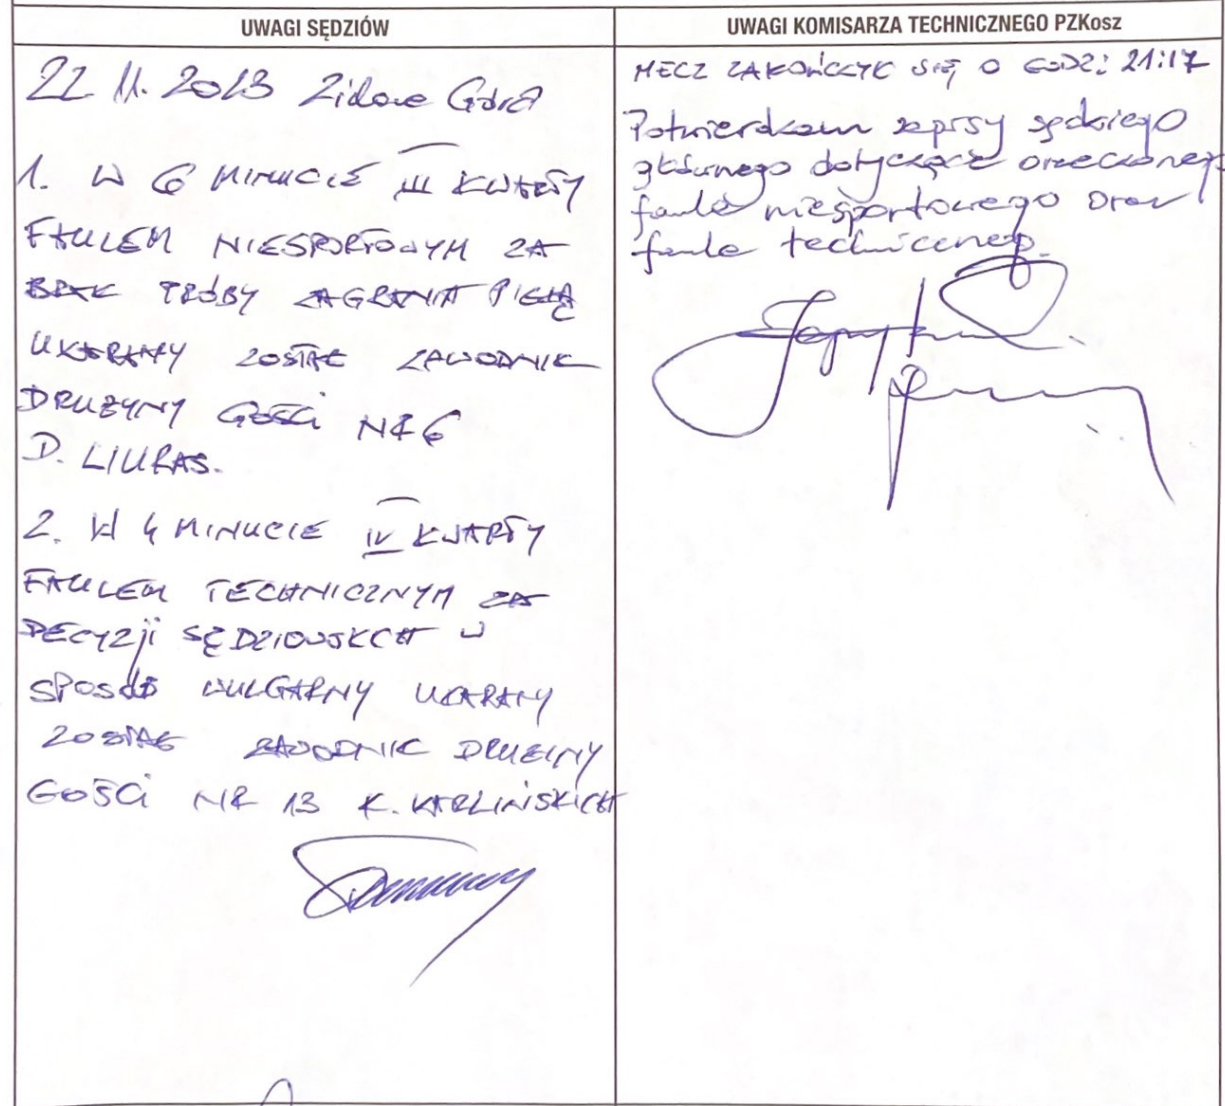 UWAGI SĘDZIÓW
22.11.2023 Zielona Góra
1. W 6 MINUCIE III KWARTY
FAULEM NIESPORTOWYM ZA
BRAK PRÓBY ZAGRANIA PIŁKĄ
UKARANY ZOSTAŁ ZAWODNIK
DRUŻYNY GOŚCI NR 6
D. LIURAS.
2. W 4 MINUCIE IV KWARTY
FAULEM TECHNICZNYM ZA
DECYZJI SĘDZIOWSKCH W
SPOSÓB WULGARNY UKARANY
ZOSTAŁ ZAWODNIK DRUŻYNY
GOŚCI NR 13 K.
UWAGI KOMISARZA TECHNICZNEGO PZKosz
MECZ ZAKOŃCZYŁ SIĘ O GODZ: 21:17
Potwierdzam zapisy sędziego
głównego dotyczące orzeczonego
faulu niesportowego oraz
faulu technicznego.